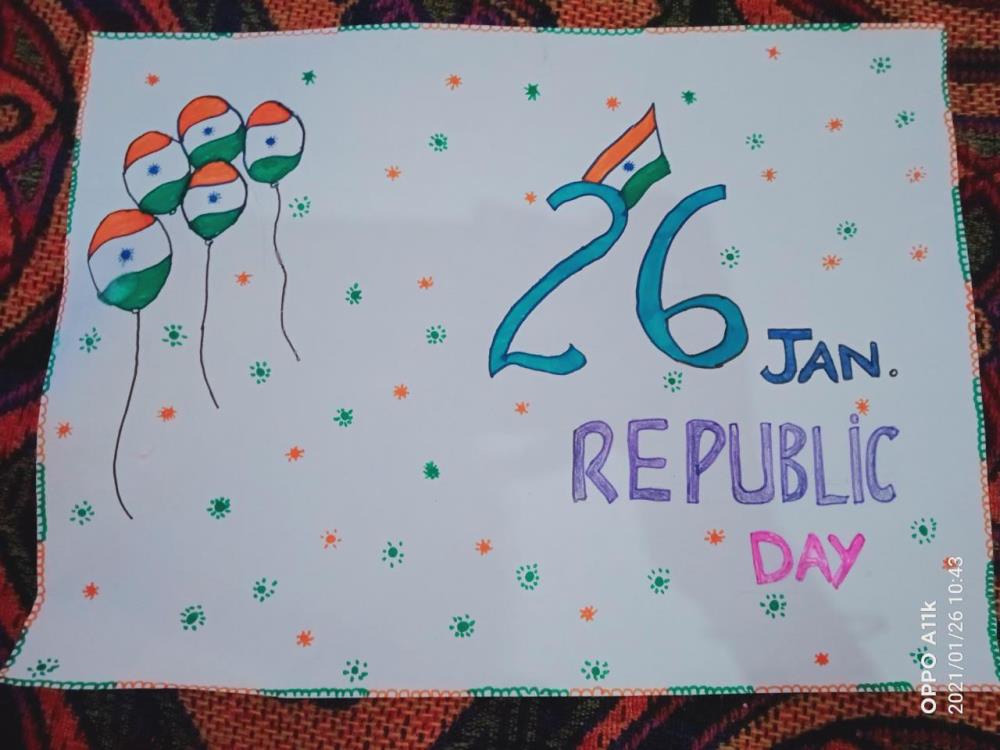 26 JAN.
REPUBLIC
DAY
OPPO A11k
2021/01/26 10:43